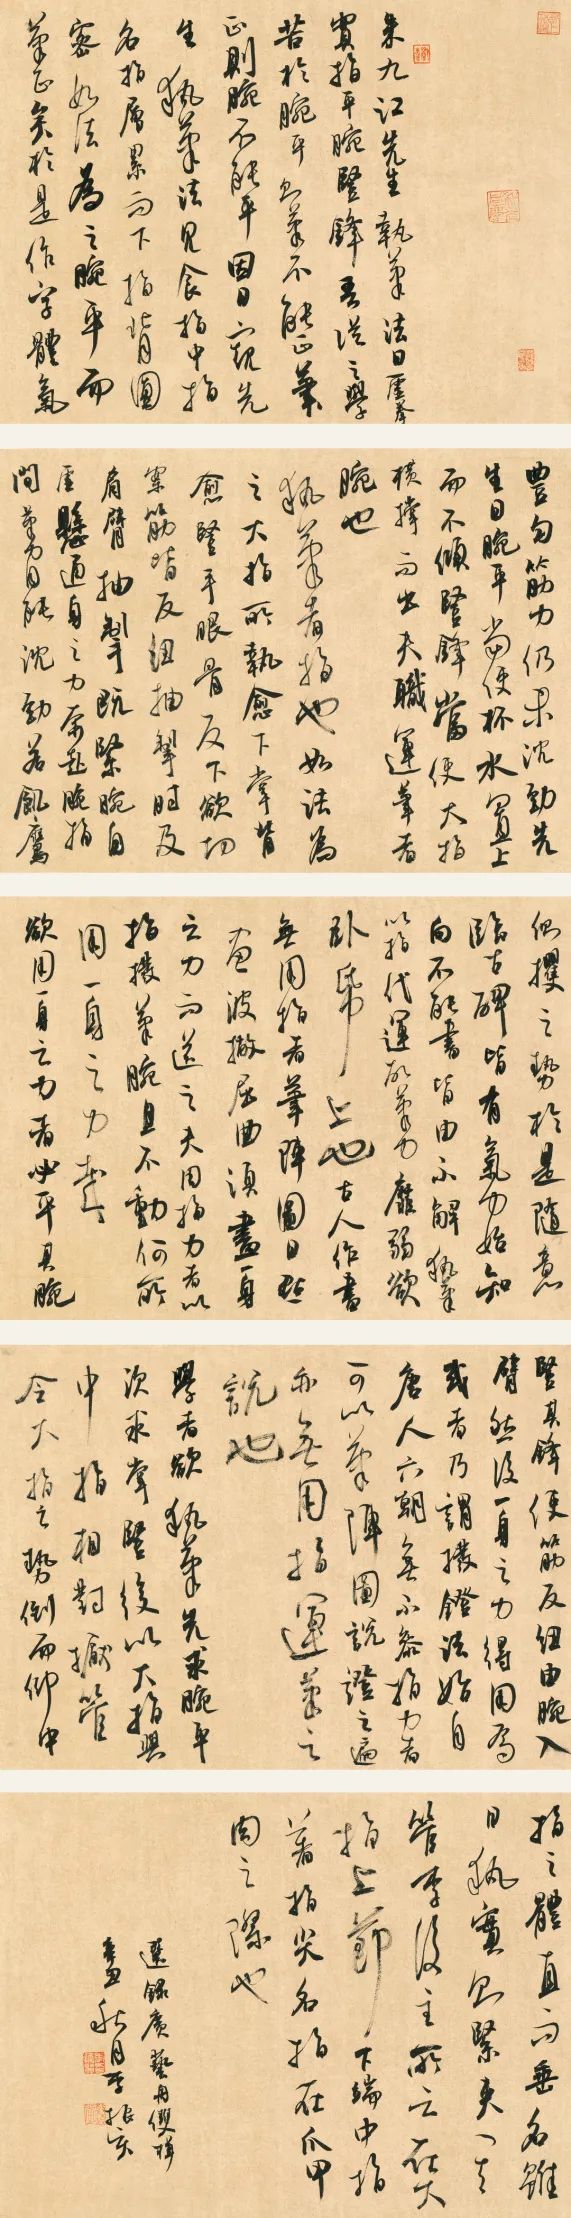 朱九江先生執筆法曰虛拳
實指平腕豎鋒吾從之學
苦於腕平則筆不能正筆
正則腕不能平因日窺先
生執筆法見食指中指
名指層累而下指背圓
密如法為之腕平而
筆正矣於是作字體氣
豐勻筋力仍未沉勁先
生曰腕平當使杯水置上
而不傾豎鋒當使大指
橫撐而出夫職運筆者
腕也
執筆者指也如法為
之大指所執愈下掌背
愈豎平眼骨反下欲切
案筋皆反紐抽掣時及
肩臂抽掣既緊腕自
虛懸通身之力奔赴腕指
間筆力自能沈勁若飢鷹
側攫之勢於是隨意
臨古碑皆有氣力始知
向不能書皆由不解執筆
以指代運故筆力靡弱欲
臥紙上也古人作書
無用指者筆陣圖曰點
畫波撇屈曲須盡一身
之力而送之夫用指力者以
指撥筆腕且不動何所
用一身之力哉
欲用一身之力者必平其腕
豎其鋒使筋反紐由腕入
臂然後一身之力得用焉
或者乃謂撥鐙法始自
唐人六朝無不參指力者
可以筆陣圖說證之遍
亦無用指運筆之
說也
學者欲執筆先求腕平
次求掌豎後以大指與
中指相對擫管
令大指之勢倒而仰中
指之體直而垂名雖
曰執實則緊夾其
管李後主所云在大
指上節下端中指
著指尖名指在爪甲
肉之際也
選錄廣藝舟雙楫